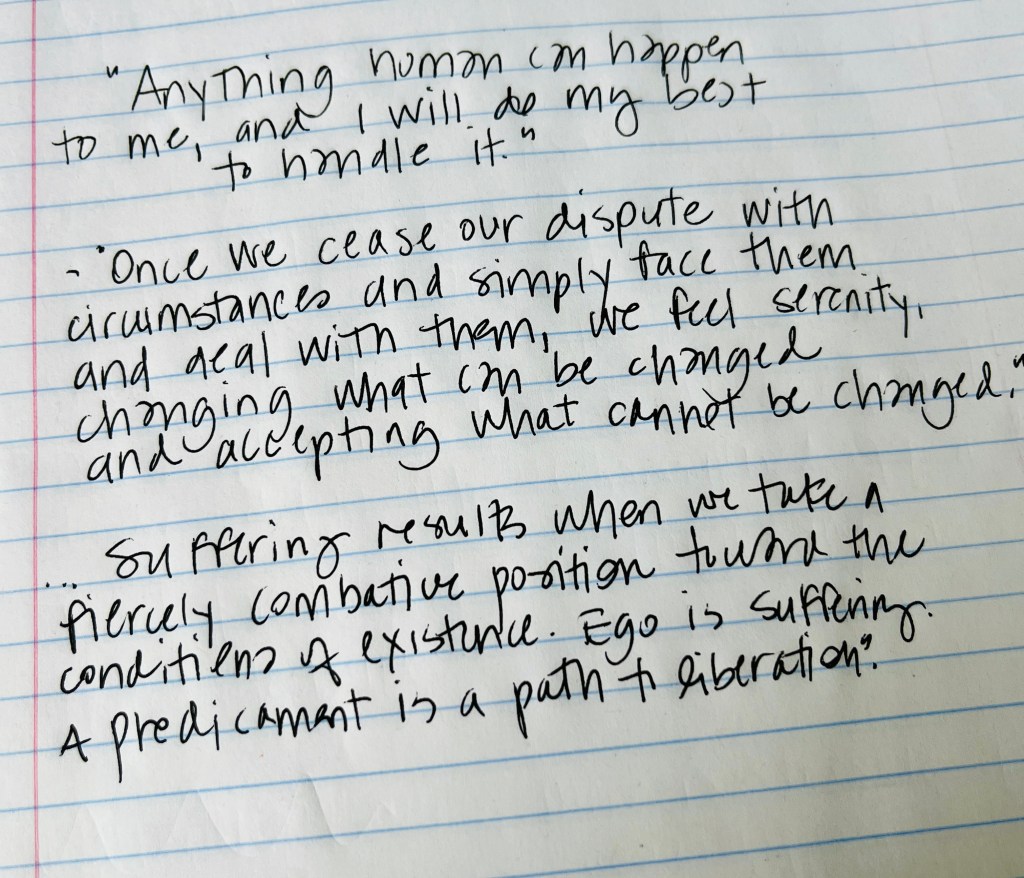 "Anything human can happen
to me, and I will do my best
to handle it."
- "Once we cease our dispute with
circumstances and simply face them
and deal with them, we feel serenity,
changing what can be changed
and accepting what cannot be changed."
... Suffering results when we take a
fiercely combative position toward the
conditions of existence. Ego is suffering.
A predicament is a path to liberation".